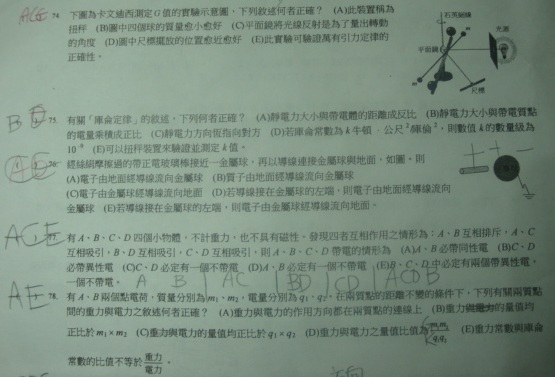 ACE 74. 下圖為卡文迪西測定G值的實驗示意圖，下列敘述何者正確？ (A)此裝置稱為
扭秤 (B)圖中四個球的質量愈小愈好 (C)平面鏡將光線反射是為了量出轉動
的角度 (D)圖中尺標擺放的位置愈近愈好 (E)此實驗可驗證萬有引力定律的
正確性。
石英細線
光源
平面鏡
m
尺標
B E 75. 有關「庫侖定律」的敘述，下列何者正確？ (A)靜電力大小與帶電體的距離成反比 (B)靜電力大小與帶電質點
的電量乘積成正比 (C)靜電力方向恆指向對方 (D)若庫侖常數為k牛頓．公尺²/庫侖²，則數值k的數量級為
10⁻⁹ (E)可以扭秤裝置來驗證並測定k值。
A 76. 經絲絹摩擦過的帶正電玻璃棒接近一金屬球，再以導線連接金屬球與地面，如圖，則
(A)電子由地面經導線流向金屬球 (B)質子由地面經導線流向金屬球
(C)電子由金屬球經導線流向地面 (D)若導線接在金屬球的左端，則電子由地面經導線流向
金屬球 (E)若導線接在金屬球的左端，則電子由金屬球經導線流向地面。
ACE 77. 有A、B、C、D四個小物體，不計重力，也不具有磁性，發現四者互相作用之情形為：A、B互相排斥，A、C
互相吸引，B、D互相吸引，C、D互相吸引，則A、B、C、D帶電的情形為 (A)A、B必帶同性電 (B)C、D
必帶異性電 (C)C、D必定有一個不帶電 (D)A、B必定有一個不帶電 (E)B、C、D中必定有兩個帶異性電，
一個不帶電。 A B | AC | BD | CD | ACDB
AE 78. 有A、B兩個點電荷，質量分別為m₁、m₂，電量分別為q₁、q₂，在兩質點的距離不變的條件下，下列有關兩質點
間的重力與電力之敘述何者正確？ (A)重力與電力的作用方向都在兩質點的連線上 (B)重力與電力的量值均
正比於m₁×m₂ (C)重力與電力的量值均正比於q₁×q₂ (D)重力與電力之量值比值為m₁m₂/q₁q₂ (E)重力常數與庫侖
常數的比值不等於重力/電力。